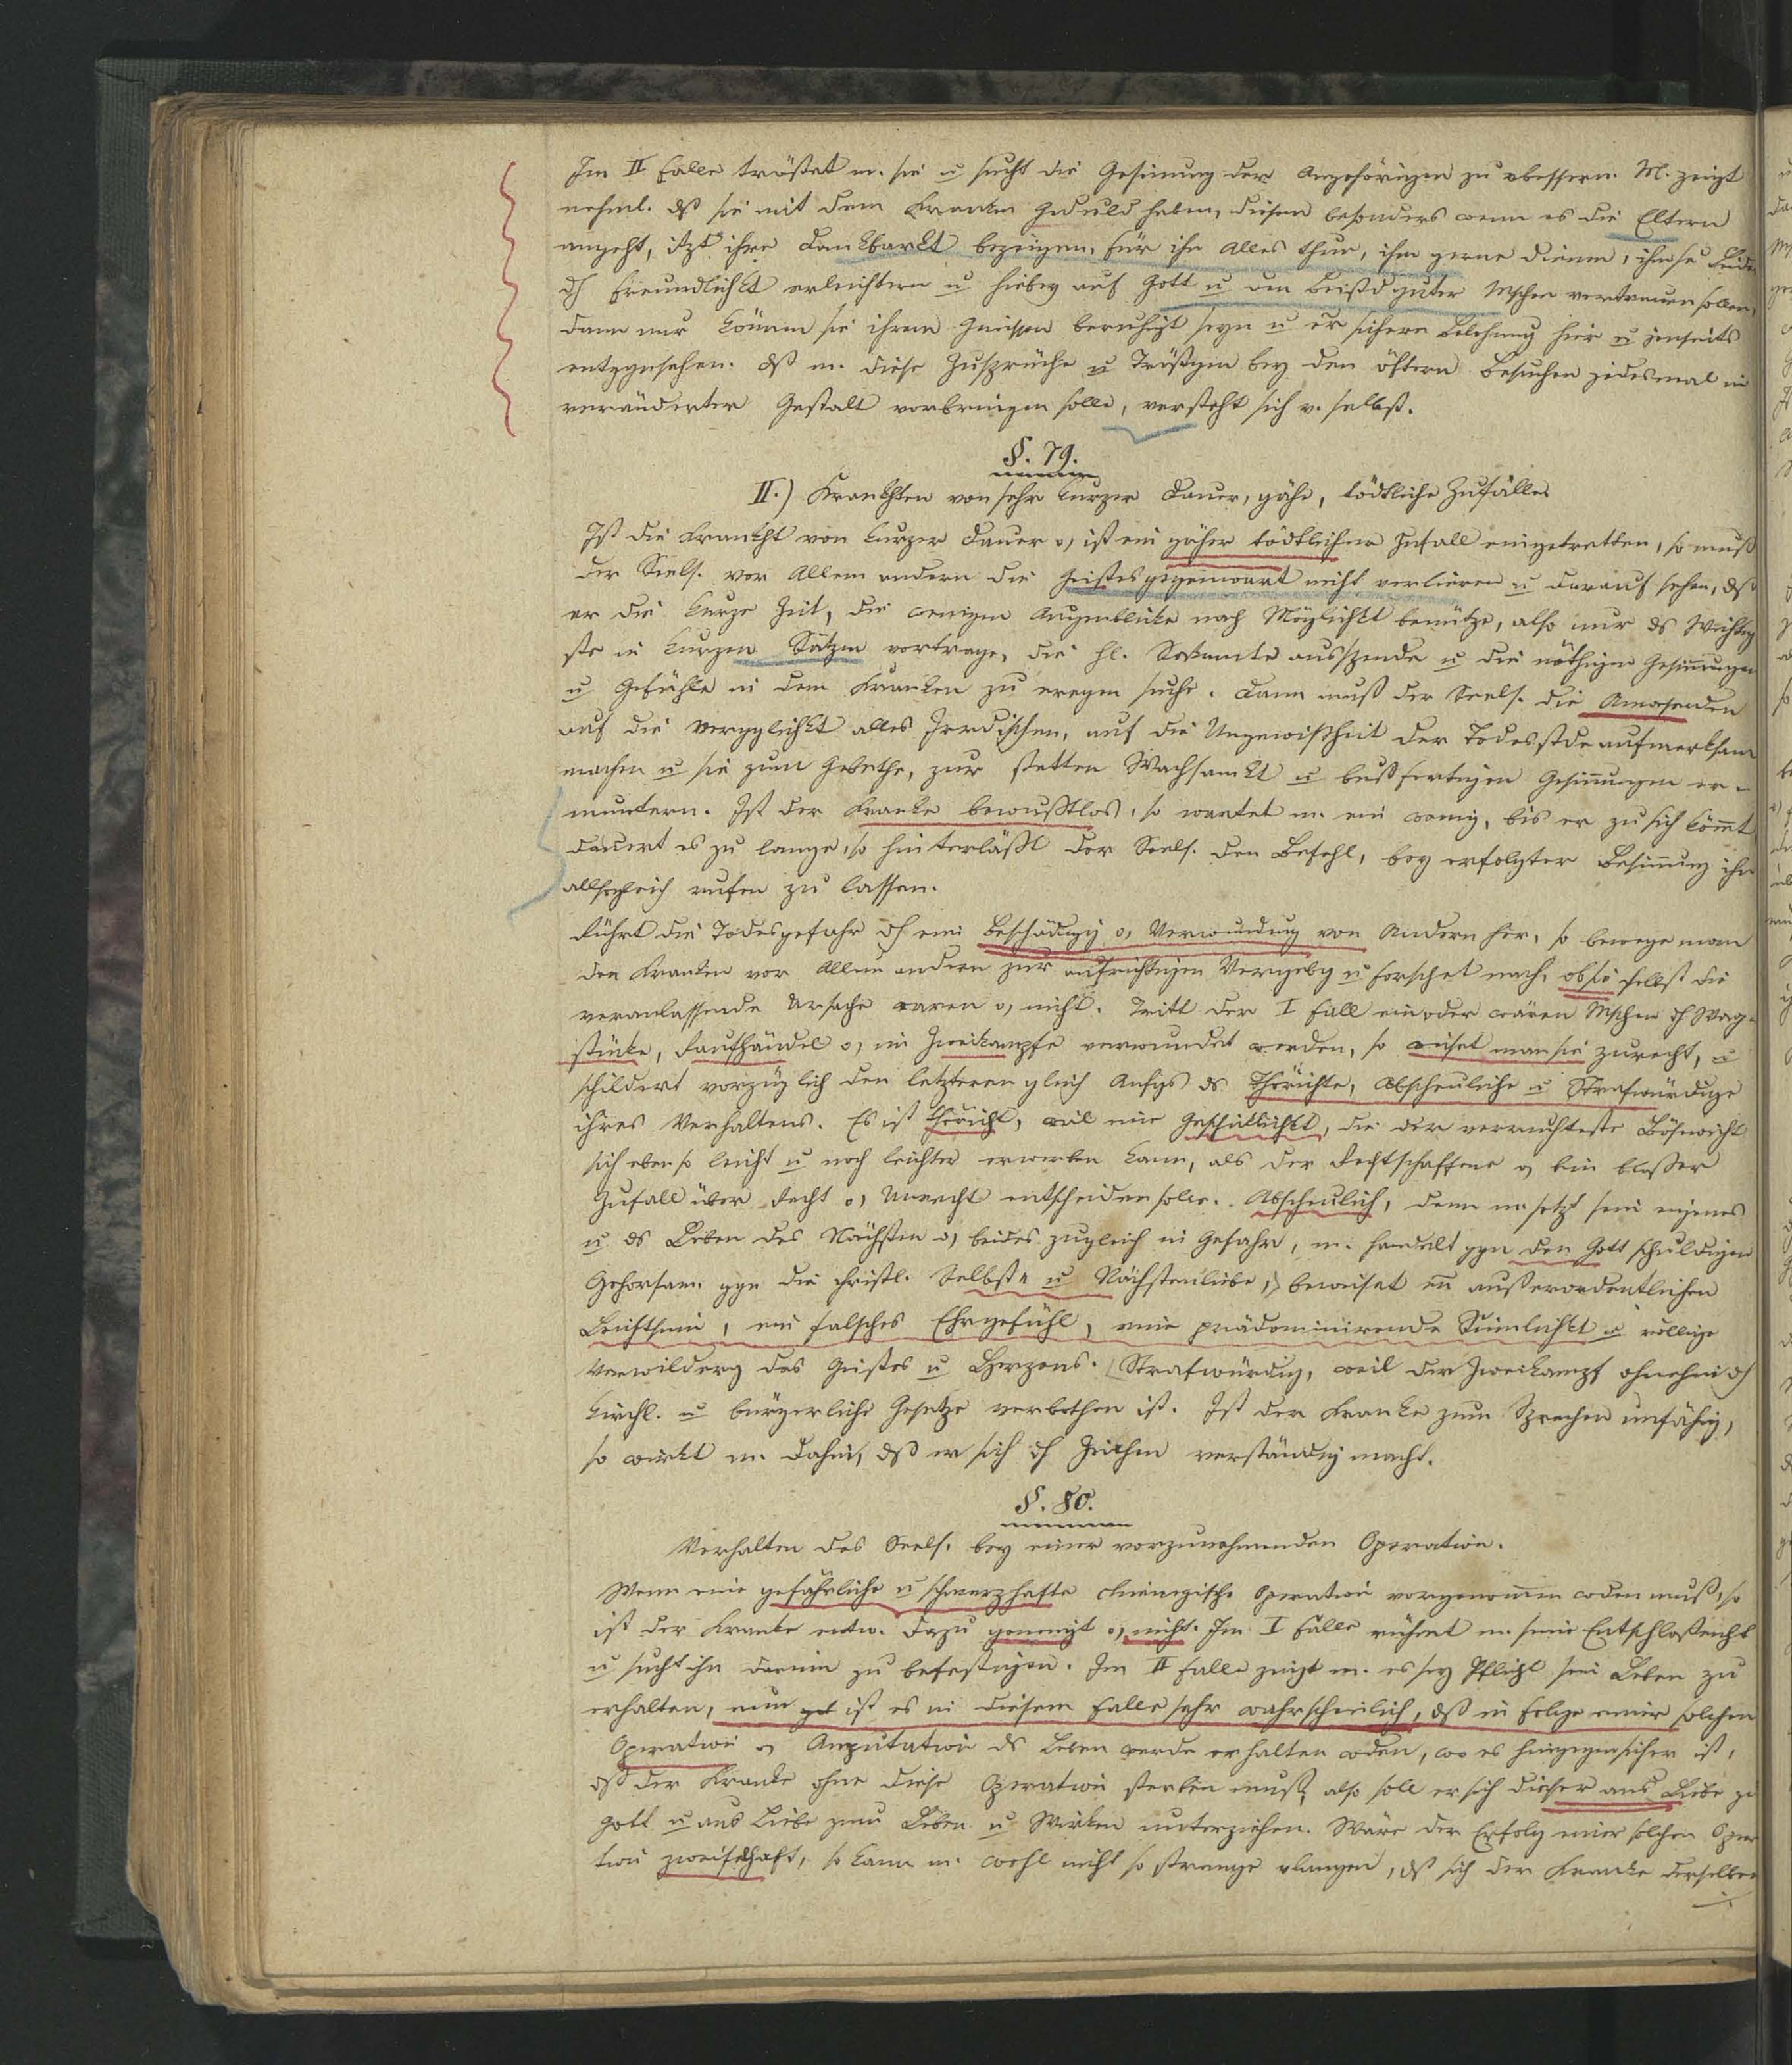 Im II Falle tröstet m. sie u sucht die Gesinnung der Angehörigen zu vbessern. M. zeigt
nehml. dß sie mit dem Kranken Geduld haben, diesem besonders wenn es die Eltern
angeht, itzt ihre Dankbarkt bezeigen, für ihn alles thun, ihm gerne dienen, ihm se Leiden
dh Freundlichkt erleichtern u hiebey auf Gott u den Beistd guter Mschen vertrauen sollen,
dann nur können sie ihrem Gewissen beruhigt seyn u er sichern Belohnung hier u jenseits
entggnsehen. Dß m. diese Zusprüche u Tröstgen bey den öftern Besuchen jedesmal in
veränderter Gestalt vorbringen solle, versteht sich v. selbst.
§. 79.
II.) Krankhten von sehr kurzer Dauer, gähe, tödtliche Zufälle.
Ist die Krankht von kurzer Dauer o, ist ein gäher tödtlicher Zufall eingetretten, so muß
der Seels. vor Allem andern die Geistesgegenwart nicht verlieren u darauf sehen, dß
er die kurze Zeit, die wenigen Augenblicke nach Möglichkt benütze, also nur ds Wichtig
ste in kurzen Sätzen vortrage, die hl. Sakramente ausspende u die nöthigen Gesinnungen
u Gefühle in dem Kranken zu eregen suche. Dann muß der Seels. die Anwesenden
auf die Vergglichkt alles Irrdischen, auf die Ungewißheit der Todesstde aufmerksam
machen u sie zum Gebethe, zur stetten Wachsamkt u bußfertigen Gesinnungen er-
muntern. Ist der Kranke bewußtlos, so wartet m. ein wenig, bis er zu sich kömmt
dauert es zu lange, so hinterläßt der Seels. den Befehl, bey erfolgter Besinnung ihn
allsogleich rufen zu lassen.
Rührt die Todesgefahr dh eine Beschädigg o, Verwundung von Andern her, so bewege man
den Kranken vor Allem andern zur aufrichtigen Vergebg u forschet nach, ob sie selbst die
veranlassende Ursache waren o, nicht. Tritt der I Fall ein oder wären Mschen dh Wag-
stücke, Raufhändel o, im Zweikampfe verwundet worden, so weiset man sie zurecht, u
schildert vorzüglich den letzteren gleich Anfgs ds Thörichte, Abscheuliche u Strafwürdige
ihres Verhaltens. Es ist thöricht, weil eine Geschicklichkt, die der verruchteste Bösewicht
sich eben so leicht u noch leichter erwerben kann, als der Rechtschaffene o, ein blosser
Zufall über Recht o, Unrecht entscheiden solle. Abscheulich, denn m setzt sein eigenes
u ds Leben des Nächsten o, beides zugleich in Gefahr, m. handelt ggn den Gott schuldigen
Gehorsam ggn die christl. Selbst- u Nächstenliebe, beweiset en außerordentlichen
Leichtsinn, ein falsches Ehrgefühl, eine prädominirende Sinnlichkt u völlige
Verwilderg des Geistes u Herzens. Strafwürdig, weil der Zweikampf ohnehin dh
kirchl. u bürgerliche Gesetze verbothen ist. Ist der Kranke zum Sprechen unfähig,
so wirkt m. dahin, dß er sich dh Zeichen verständig macht.
§. 80.
Verhalten des Seels. bey einer vorzunehmenden Operation.
Wenn eine gefährliche u schmerzhafte chirurgische Operation vorgenommen wden muß, so
ist der Kranke entw. dazu geneigt o, nicht. Im I Falle rühmt m. seine Entschloßenht
u sucht ihn darinn zu befestigen. Im II Falle zeigt m. es sey Pflicht sein Leben zu
erhalten, nun ist es in diesem Falle sehr wahrscheinlich, dß in Folge einer solchen
Operation o, Amputation ds Leben werde erhalten wden, wo es hingegen sicher ist,
dß der Kranke ohne diese Operation sterben muß, also soll er sich dieser aus Liebe zu
Gott u aus Liebe zum Leben u Wirken unterziehen. Wäre der Erfolg einer solchen Opera
tion zweifelhaft, so kann m. wohl nicht so strenge vlangen, dß sich der Kranke derselben